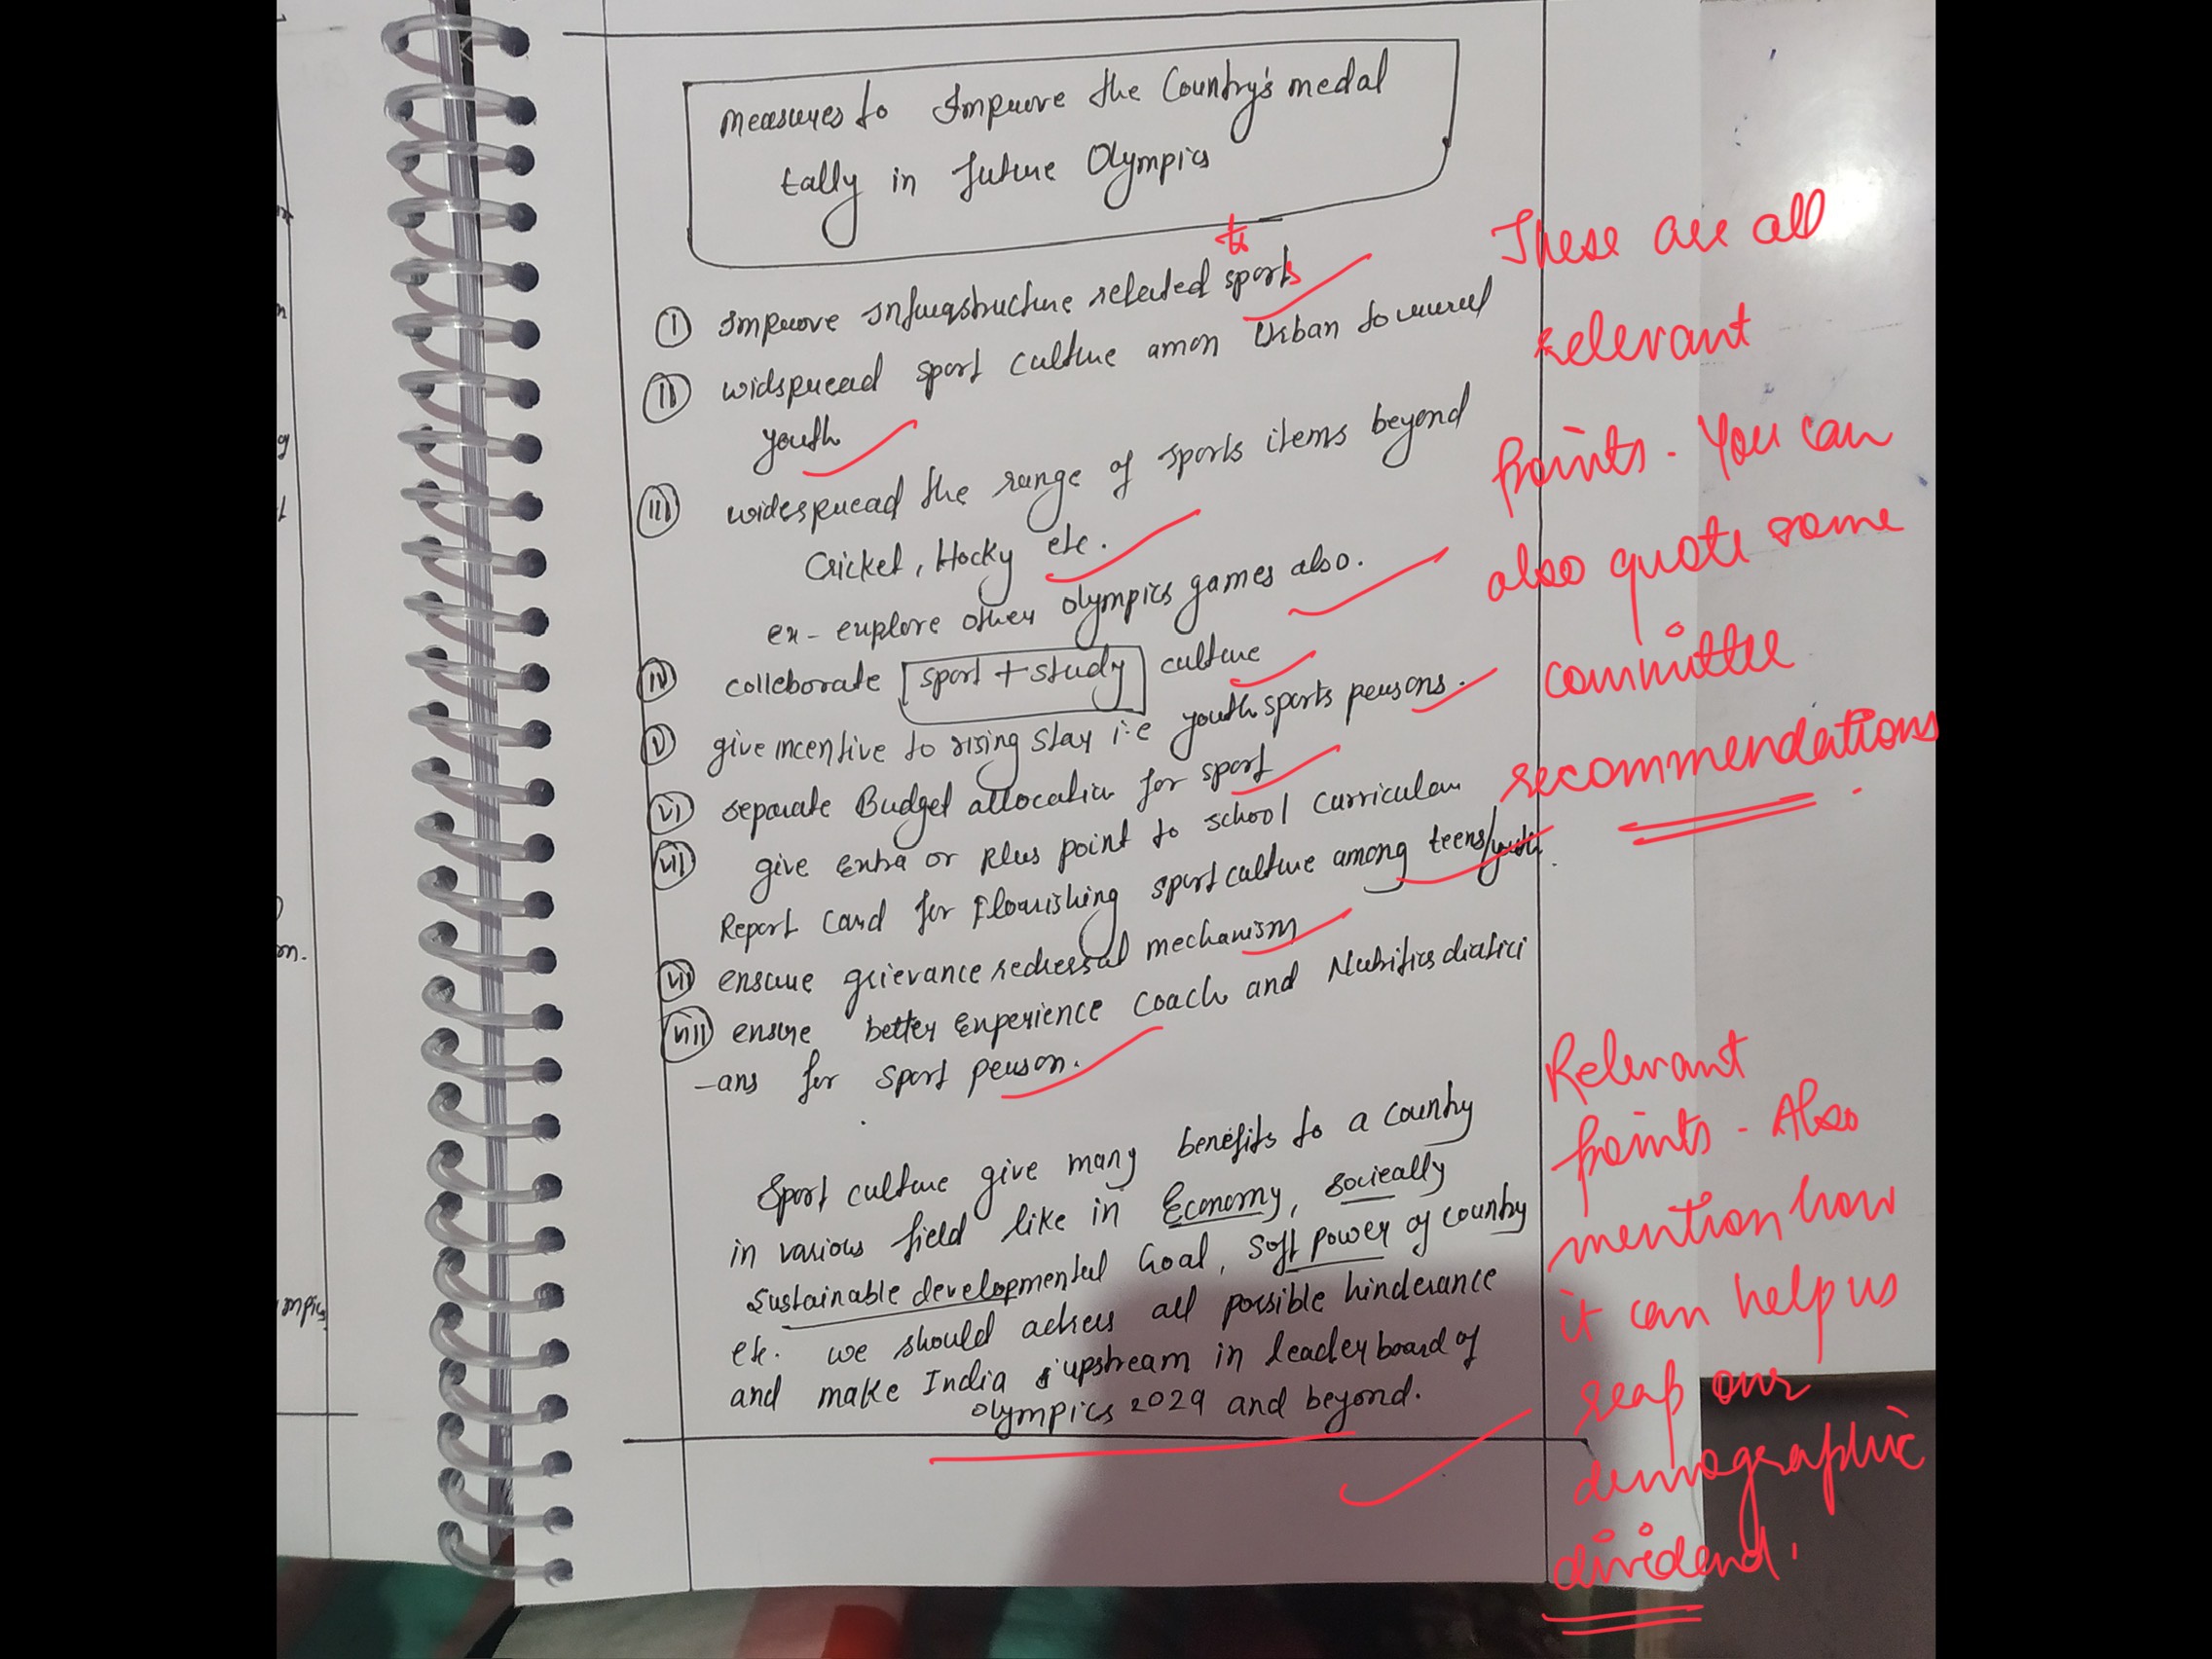 Measures to Improve the Country's medal
tally in future Olympics
to
I improve infrastructure related sports
II widspread sport culture amon Urban to rural
youth
III widespread the range of sports items beyond
Cricket, Hocky etc.
ex- explore other olympics games also.
IV colleborate sport + study culture
V give incentive to rising stay i.e youth sports persons.
VI separate Budget allocation for sport
VII give extra or plus point to school curriculam
Report Card for flourishing sport culture among teens/youth.
VII ensure grievance redressal mechanism
VIII ensure better experience coach and Nutrities diatici
-ans for sport person.
Sport culture give many benefits to a country
in various field like in Economy, socieally
sustainable developmental Goal, soft power of country
etc. we should adress all possible hinderance
and make India upstream in leaderboard of
olympics 2029 and beyond.
These are all
relevant
points. You can
also quote some
committee
recommendations.
Relevant
points - Also
mention how
it can help us
reap our
demographic
dividend.
on.
mpics